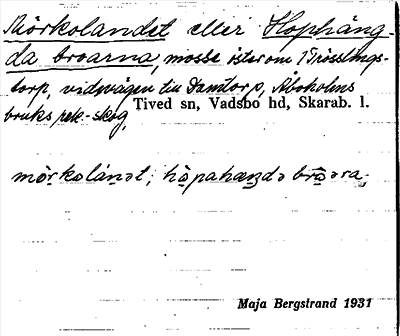 Mörkolandet eller Hophäng-
da broarna, mosse öster om Brösslings-
torp, vid vägen till Damtorp, Åboholms
bruks pek. skog,
Tived sn, Vadsbo hd, Skarab. l.
mö̀rkolánət; hòpahæŋdə bròəra,
Maja Bergstrand 1931